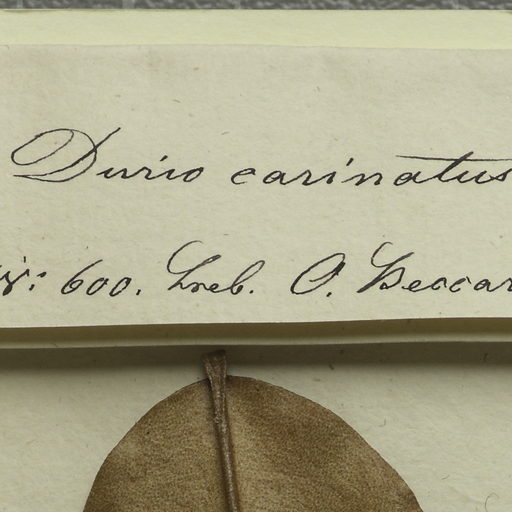 Durio carinatus
N: 600. Hreb. O. Beccar